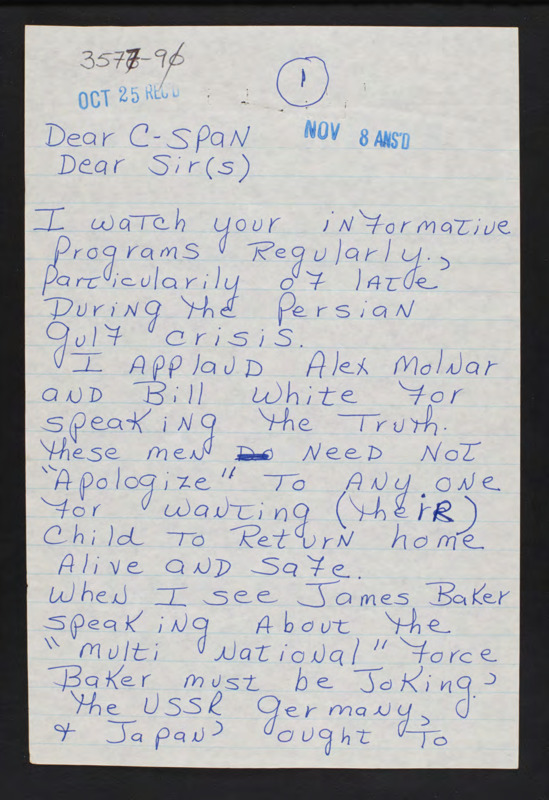 3577-90
1
OCT 25 REC'D
NOV 8 ANS'D
Dear C-SPAN
Dear Sir(s)
I watch your informative
Programs Regularly.,
Particularily of late
During the Persian
Gulf crisis.
I Applaud Alex Molnar
and Bill White for
speaking the Truth.
These men Do Need Not
"Apologize" To Any one
for wanting (their)
Child To Return home
Alive and Safe.
When I see James Baker
speaking About the
"multi National" force
Baker must be Joking,
the USSR Germany,
& Japan, ought To